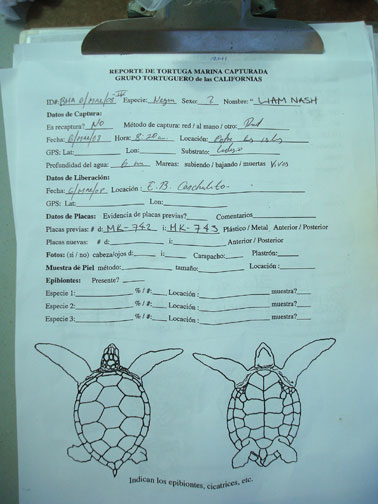 REPORTE DE TORTUGA MARINA CAPTURADA
GRUPO TORTUGUERO de las CALIFORNIAS
ID#: BMA 6/MAR/08 Especie: Negra Sexo: ? Nombre: LIAM NASH
Datos de Captura:
Es recaptura? NO Método de captura: red / al mano / otro: Red
Fecha: 6/MAR/08 Hora: 8:20 Location:
GPS: Lat: Lon: Substrato:
Profundidad del agua: 6 m Mareas: subiendo / bajando / muertas Vivas
Datos de Liberación:
Fecha: 6/MAR/08 Location: E.B.
GPS: Lat: Lon:
Datos de Placas: Evidencia de placas previas? Comentarios
Placas previas: # d: MK-742 i: MK-743 Plástico / Metal Anterior / Posterior
Placas nuevas: # d: i: Anterior / Posterior
Fotos: (si / no) cabeza/ojos d: i: Carapacho: Plastrón:
Muestra de Piel método: tamaño: Location:
Epibiontes: Presente?
Especie 1: % / #: Location: muestra?
Especie 2: % / #: Location: muestra?
Especie 3: % / #: Location: muestra?
Indican los epibiontes, cicatrices, etc.